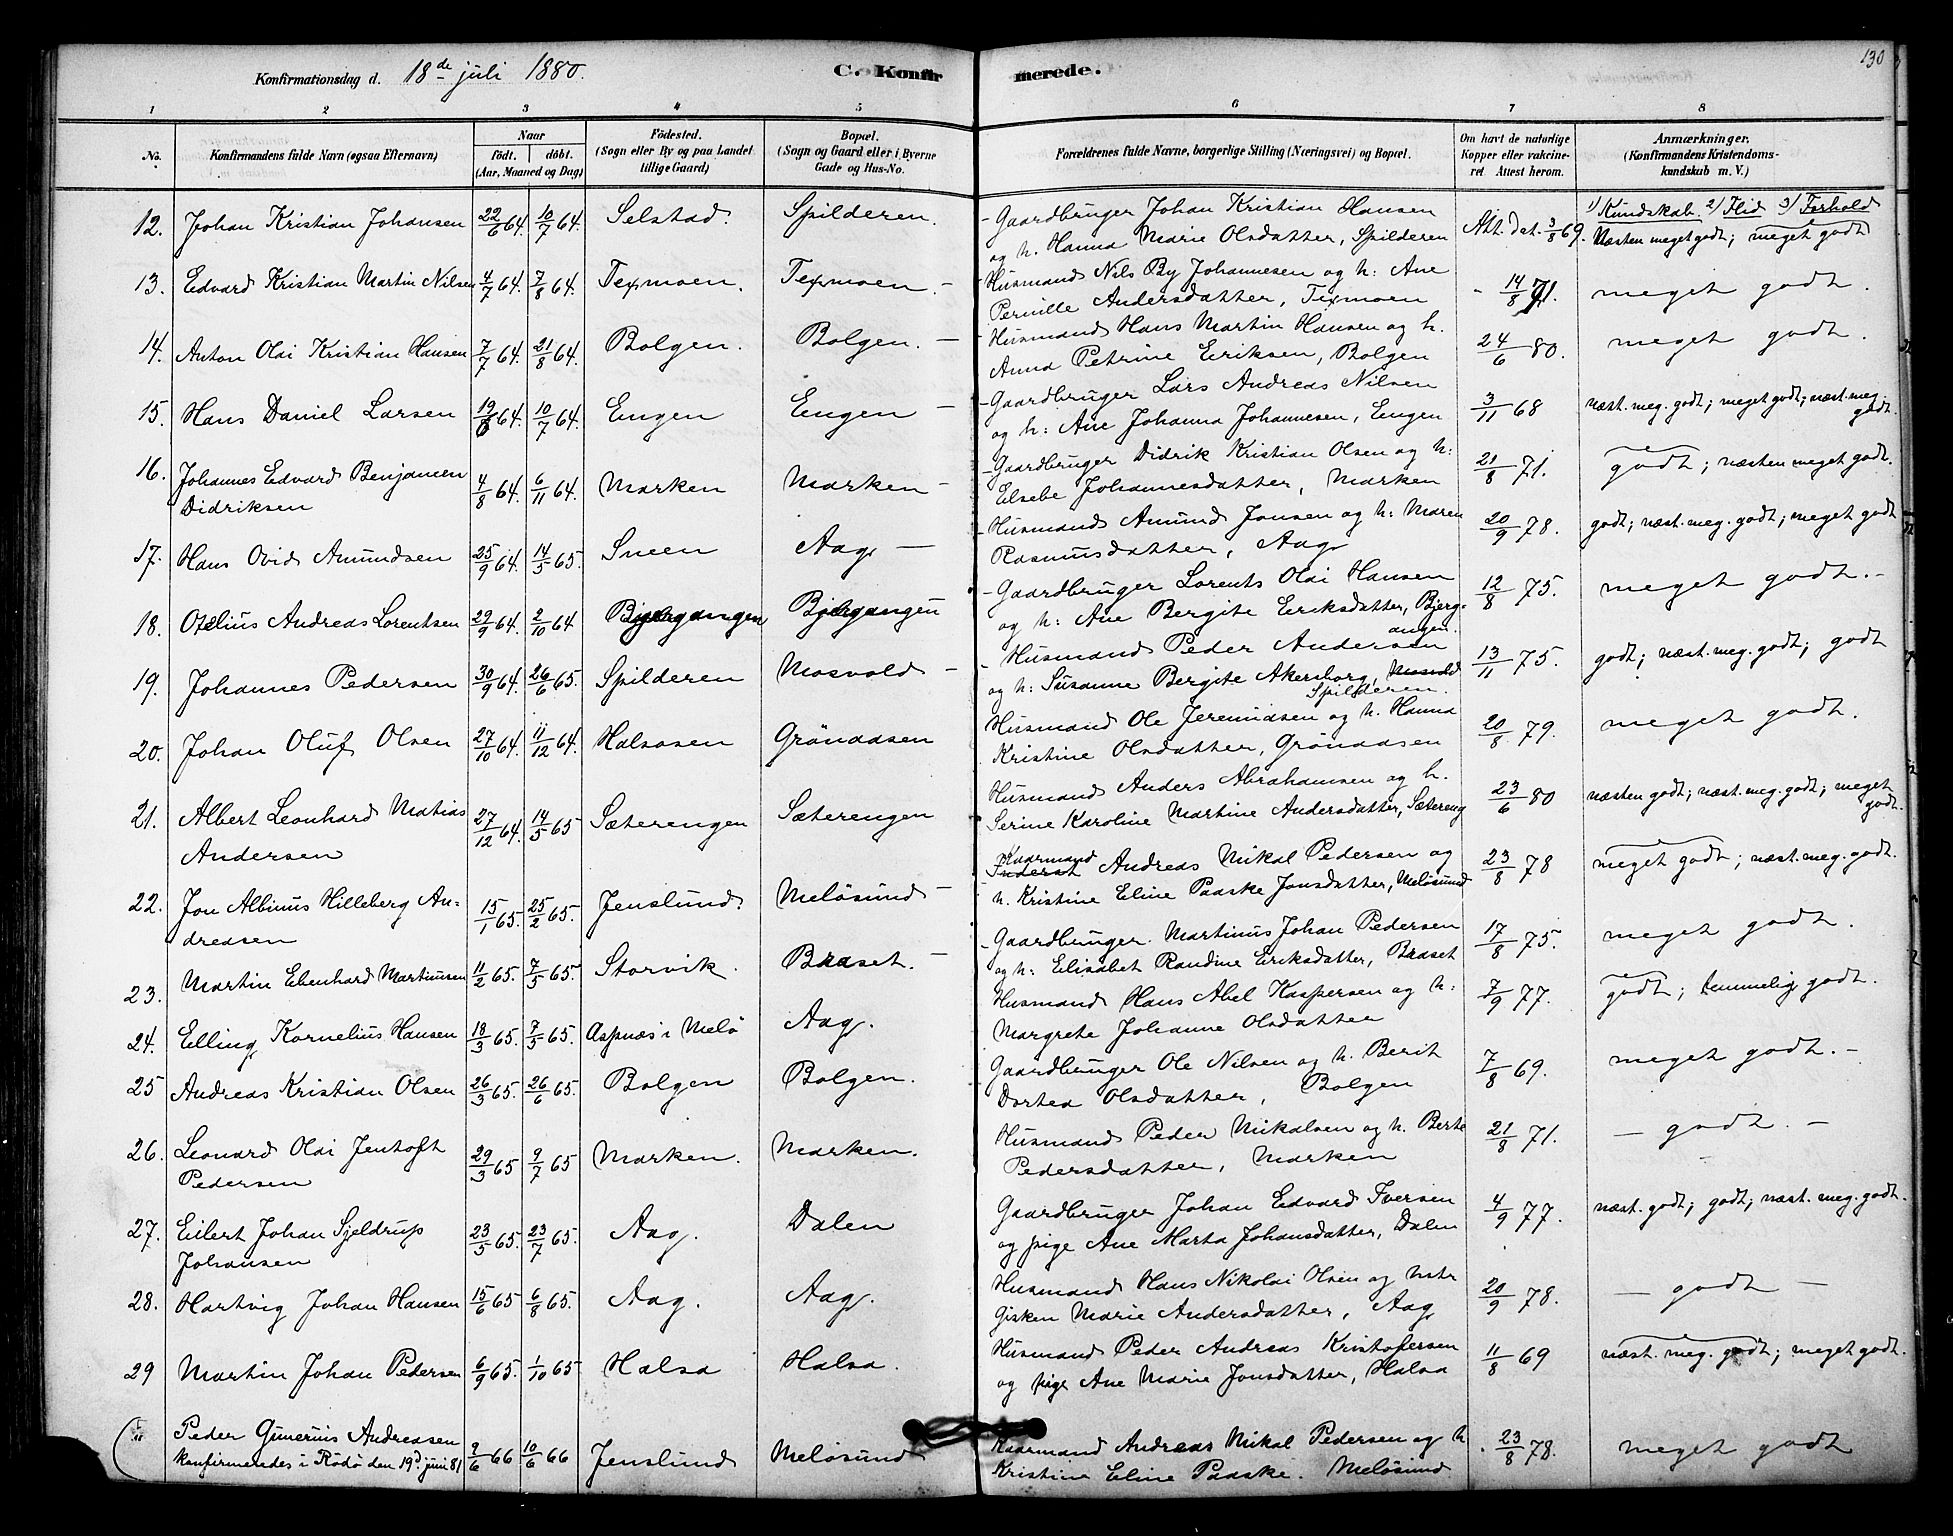 130
Konfirmationsdag d. 18de juli 1880.
C. Konfirmerede.
1 2 3 4 5 6 7 8
No.
Konfirmandens fulde Navn (ogsaa Efternavn)
Naar
födt. döbt.
(Aar, Maaned og Dag)
Födested.
(Sogn eller By og paa Landet
tillige Gaard)
Bopæl.
(Sogn og Gaard eller i Byerne
Gade og Hus-No.
Forældrenes fulde Navne, borgerlige Stilling (Næringsvei) og Bopæl.
Om havt de naturlige
Kopper eller vakcine-
ret. Attest herom.
Anmærkninger.
(Konfirmandens Kristendoms-
kundskab m. V.)
1) Kundskab. 2) Flid 3) Forhold
12. Johan Kristian Johansen 22/6 64. 10/7 64. Selstad Spilderen. - Gaardbruger Johan Kristian Hansen
og h. Hanna Marie Olsdatter, Spilderen Att. dat. 3/8 69. Næsten meget godt; meget godt
13. Edvard Kristian Martin Nilsen 4/7 64. 7/8 64. Texmoen. Texmoen. - - Husmand Nils By Johannesen og h: Ane
Pernille Andersdatter, Texmoen - 14/8 71. meget godt.
14. Anton Olai Kristian Hansen 7/7 64. 21/8 64. Bolgen. Bolgen. - - Husmand Hans Martin Hansen og h.
Anna Petrine Eriksen, Bolgen 24/6 80. meget godt.
15. Hans Daniel Larsen 19/6 64. 10/7 64. Engen Engen - - Gaardbruger Lars Andreas Nilsen
og h: Ane Johanna Johannesen, Engen 3/11 68 næst. meg. godt; meget godt; næst. meg.
godt.
16. Johannes Edvard Benjamen
Didriksen 4/8 64. 6/11 64. Marken Marken - - Gaardbruger Didrik Kristian Olsen og h:
Elsebe Johannesdatter, Marken 21/8 71. godt; næsten meget godt.
17. Hans Ovid Amundsen 25/9 64. 14/5 65. Sneen Aag - - Husmand Amund Jonsen og h: Maren
Rasmusdatter, Aag 20/9 78. godt; næst. meg. godt; meget godt
18. Otelius Andreas Lorentsen 29/9 64. 2/10 64 Bjergangen Bjergangen - Gaardbruger Lorents Olai Hansen
og h: Ane Bergite Eriksdatter, Bjerg-
angen. 12/8 75. meget godt. -
19. Johannes Pedersen 30/9 64. 26/6 65. Spilderen Mosvold - - Husmand Peder Andersen
og h: Susanne Bergite Akersborg, Mosvold
Spilderen. 13/11 75. godt; næst. meg. godt; godt
20. Johan Oluf Olsen 27/10 64. 11/12 64. Halsosen Grönaasen Husmand Ole Jeremiasen og h. Hanna
Kristine Olsdatter, Grönaasen 20/8. 79. meget godt.
21. Albert Leonhard Matias
Andersen 27/12 64. 14/5 65 Sæterengen Sæterengen Husmand Anders Abrahamsen og h.
Serine Karoline Martine Andersdatter, Sætereng 23/6 80 næsten godt; næst. meg. godt; meget
godt.
22. Jon Albinus Hilleberg An-
dreasen 15/1 65. 25/2 65. Jenslund. Melösund - Kaarmand
Inderst Andreas Mikal Pedersen og
h. Kristine Eline Paaske Jonsdatter, Melösund 23/8 78 meget godt; næst. meg. godt.
23. Martin Ebenhard Martinusen 11/2 65. 7/5 65. Storvik. Braset. - - Gaardbruger. Martinus Johan Pedersen
og h: Elisabet Randine Eriksdatter, Braset 17/8 75. meget godt.
24. Elling Kornelius Hansen 18/3 65. 7/5 65. Aspnæs i Melö Aag. Husmand Hans Abel Kaspersen og h:
Margrete Johanne Olsdatter 7/9 77. godt; temmelig godt.
25 Andreas Kristian Olsen 26/3 65. 26/6 65. Bolgen Bolgen. Gaardbruger Ole Nilsen og h. Berit
Dortea Olsdatter, Bolgen 7/8 69. meget godt. -
26. Leonard Olai Jentoft
Pedersen 29/3 65 9/7 65 Marken. Marken. Husmand Peder Mikalsen og h. Berte
Pedersdatter, Marken 21/8 71. - godt. -
27. Eilert Johan Sjeldrup
Johansen 23/5 65. 23/7 65. Aag. Dalen Gaardbruger Johan Edvard Iversen
og pige Ane Marta Johansdatter, Dalen 4/9 77. næst. godt; godt; næst. meg. godt.
28. Hartvig Johan Hansen 15/6 65 6/8 65. Aag. Aag. Husmand Hans Nikolai Olsen og hstr
Gisken Marie Andersdatter, Aag 20/9 78. - godt -
29 Martin Johan Pedersen 6/9 65. 1/10 65 Halsa Halsa. Husmand Peder Andreas Kristofersen
og pige Ane Marie Jonsdatter, Halsa 11/8 69 næst. meg. godt; meget godt.
Peder Gunerius Andreasen
konfirmeredes i Rödö den 19d juni 81 9/6 66 10/6 66 Jenslund Melösund Kaarmand Andreas Mikal Pedersen og h
Kristine Eline Paaske. Melösund . 23/8 78. meget godt